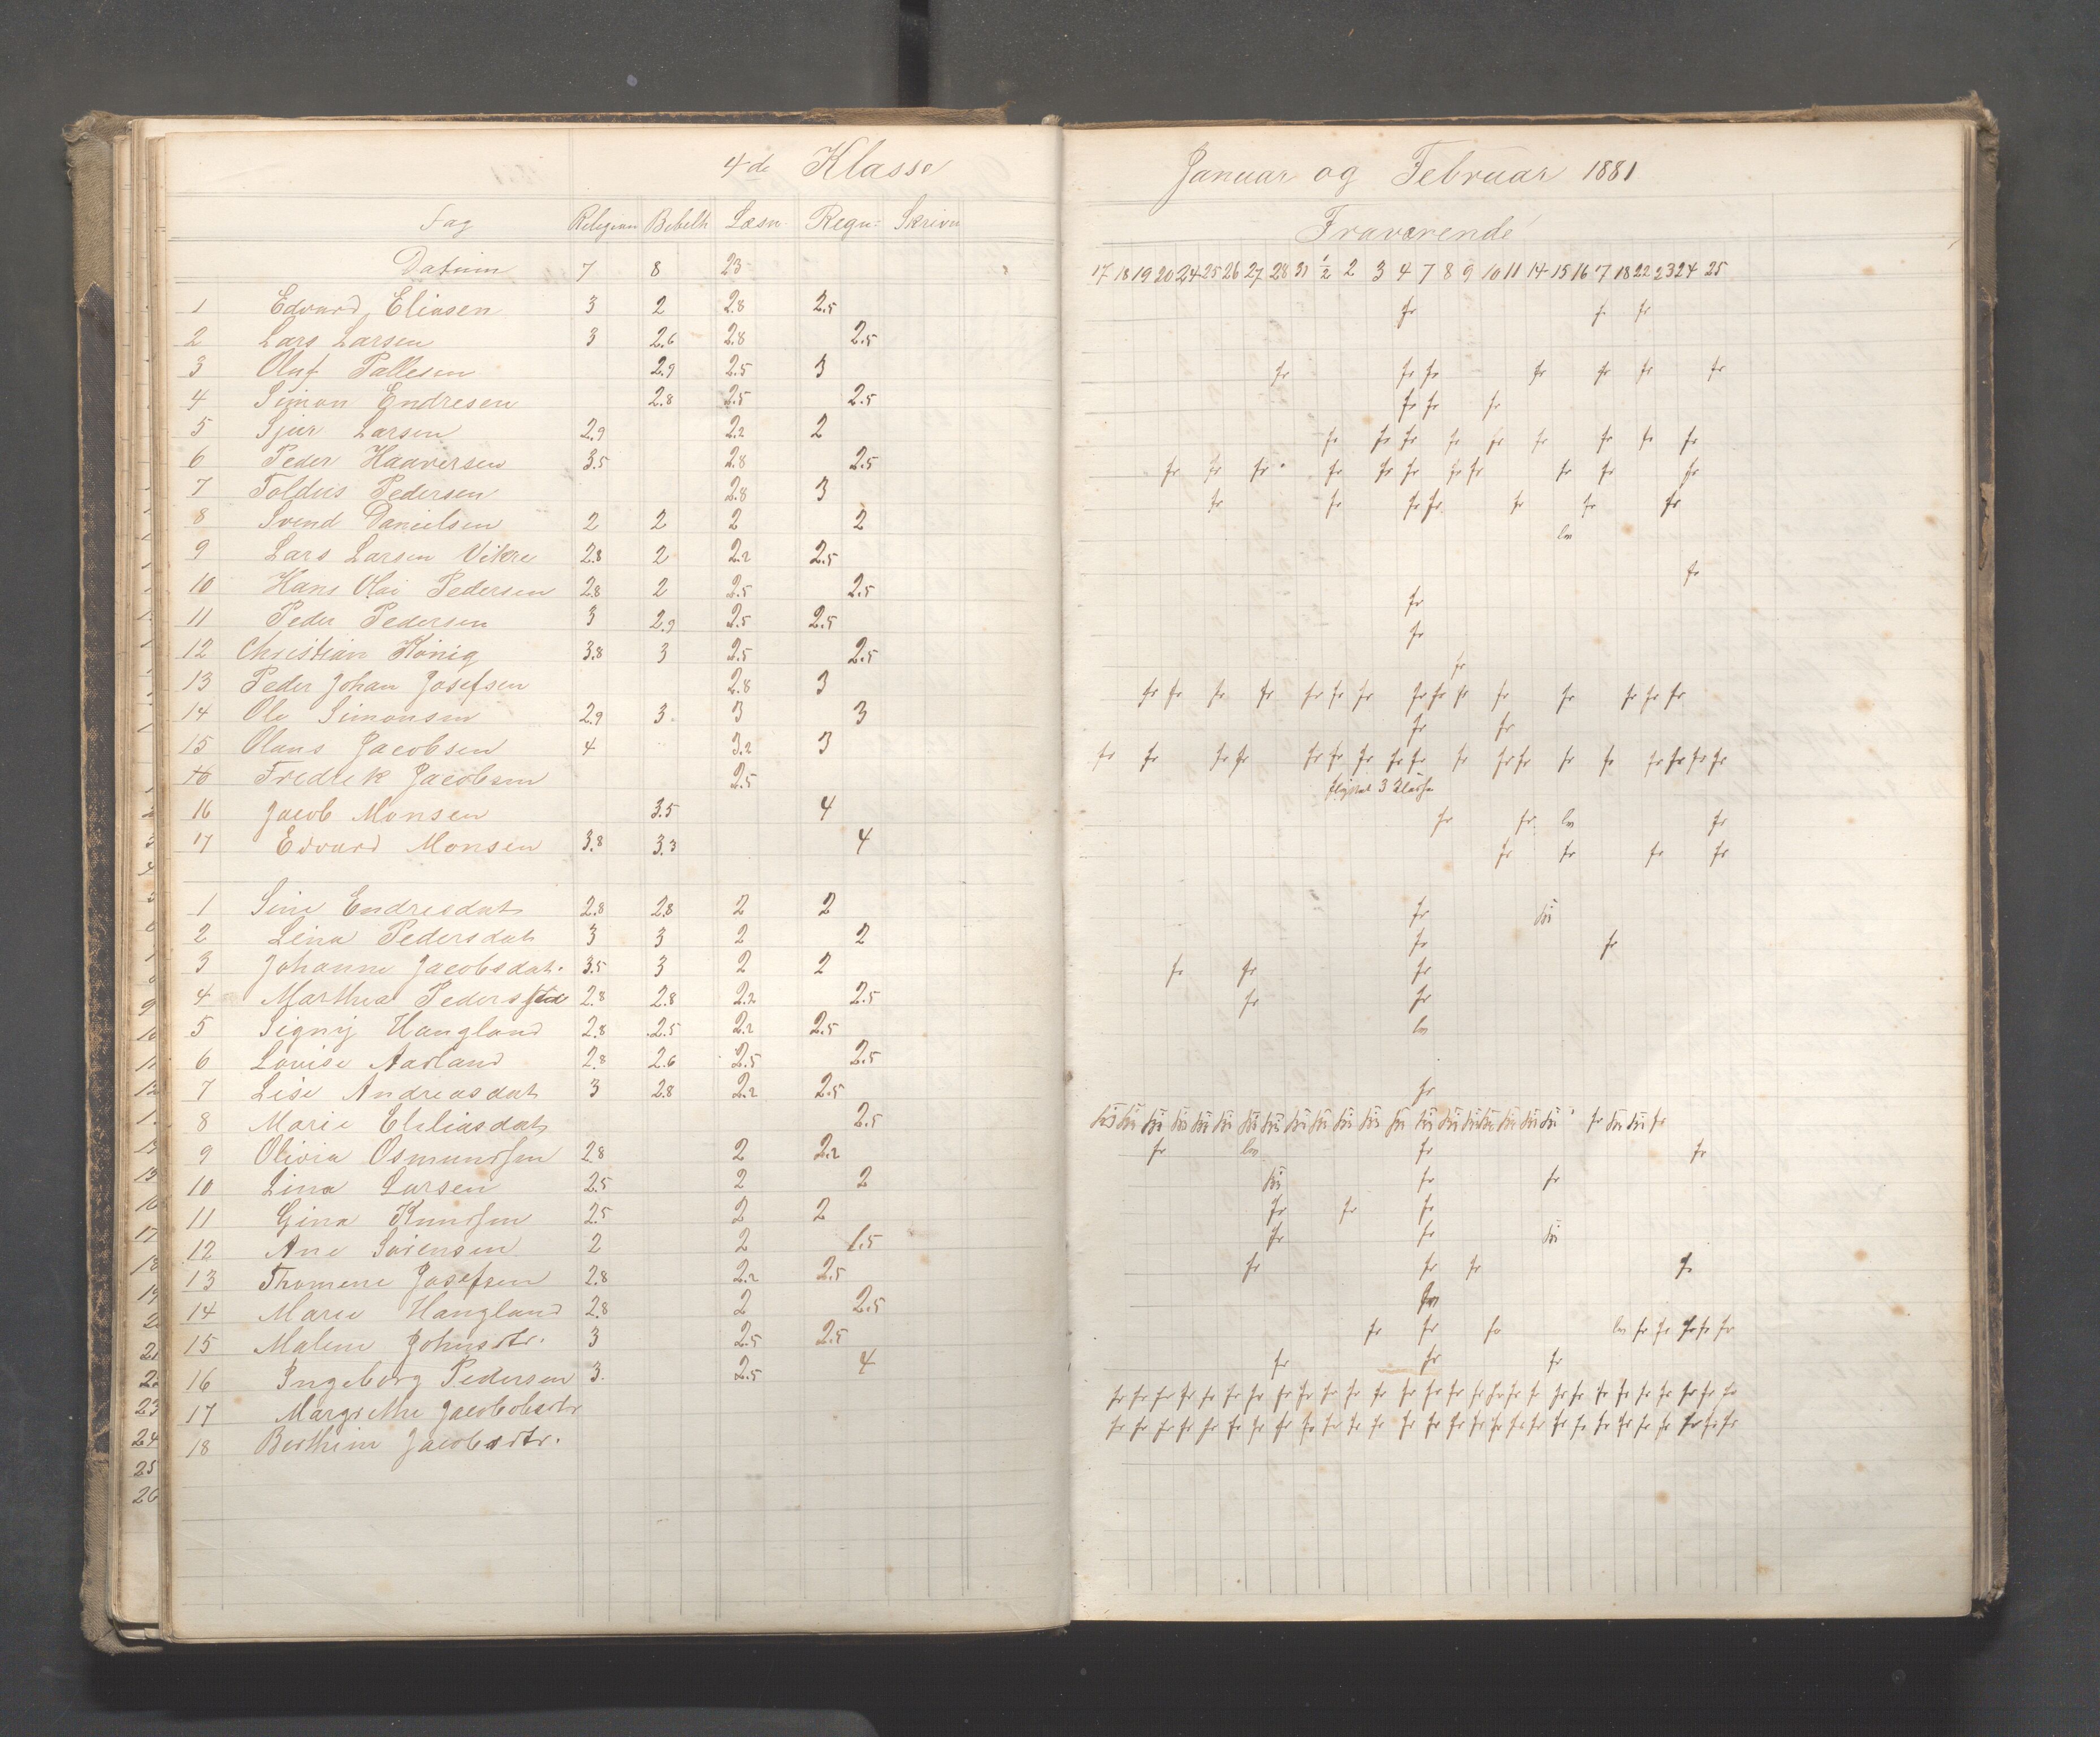 4de Klasse
Fag Religion Bibelh Læsn. Regn: Skrivn
Datum 7 8 23
1 Edvard Eliasen 3 2 2.8 2.5
2 Lars Larsen 3 2.6 2.8 2.5
3 Oluf Pallesen 2.9 2.5 3
4 Simon Endresen 2.8 2.5 2.5
5 Sjur Larsen 2.9 2.2 2
6 Peder Haaversen 3.5 2.8 2.5
7 Toldeis Pedersen 2.8 3
8 Svend Danielsen 2 2 2 2
9 Lars Larsen Vikre 2.8 2 2.2 2.5
10 Hans Olai Pedersen 2.8 2 2.5 2.5
11 Peder Pedersen 3 2.9 2.5 2.5
12 Christian König 3.8 3 2.5 2.5
13 Peder Johan Josefsen 2.8 3
14 Ole Simonsen 2.9 3 3 3
15 Olaus Jacobsen 4 3.2 3
16 Fredrek Jacobsen 2.5
16 Jacob Monsen 3.5 4
17 Edvard Monsen 3.8 3.3 4
1 Sine Endresdat 2.8 2.8 2 2
2 Lina Pedersdat 3 3 2 2
3 Johanne Jacobsdat. 3.5 3 2 2
4 Marthea 2.8 2.8 2.2 2.5
5 Signij Haugland 2.8 2.5 2.2 2.5
6 Lovise Aarland 2.8 2.6 2.5 2.5
7 Lise Andreasdat 3 2.8 2.2 2.5
8 Marie Eleliasdat 2.5
9 Olivia Osmundsen 2.8 2 2.2
10 Lina Larsen 2.5 2 2
11 Gina Knudsen 2.5 2 2
12 Ane Sørensen 2 2 1.5
13 Thomene Josefsen 2.8 2.2 2.5
14 Marie Haugland 2.8 2 2.5
15 Malene Johnsdtr. 3 2.5 2.5
16 Ingeborg Pedersen 3. 2.5 4
17 Margrethe Jacobobsdtr
18 Berthine Jacobsdtr.
Januar og Februar 1881
Fraværende
17 18 19 20 24 25 26 27 28 31 1/2 2 3 4 7 8 9 10 11 14 15 16 17 18 22 23 24 25
fr fr fr
fr fr fr fr fr fr fr
fr fr fr
fr fr fr fr fr fr fr fr fr
fr fr fr fr fr fr fr fr fr fr fr
fr fr fr fr fr fr fr
fr
fr
fr
fr
fr fr fr fr fr fr fr fr fr fr fr fr fr fr fr
fr fr
fr fr fr fr fr fr fr fr fr fr fr fr fr fr fr fr fr fr
3 Klasse
fr fr fr
fr fr fr fr
fr
fr fr
fr fr fr
fr fr
fr
fr fr
fr fr fr
fr fr
fr fr fr
fr fr
fr fr fr fr
fr fr fr fr fr fr fr fr
fr fr fr
fr fr fr fr fr fr fr fr fr fr fr fr fr fr fr fr fr fr fr fr fr fr fr fr fr fr fr
fr fr fr fr fr fr fr fr fr fr fr fr fr fr fr fr fr fr fr fr fr fr fr fr fr fr fr
9
10
11
12
16
17
18
19
21
23
24
25
26